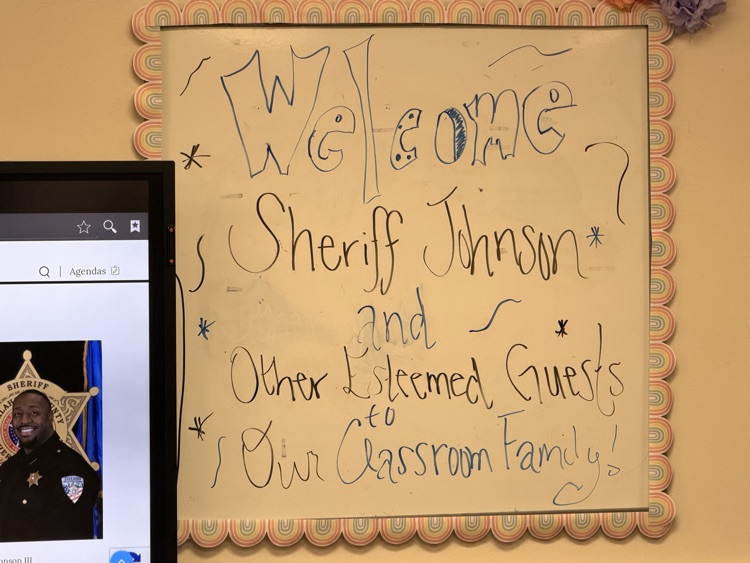 Welcome
Sheriff Johnson
and
Other Esteemed Guests
to
Our Classroom Family!
Agendas
SHERIFF